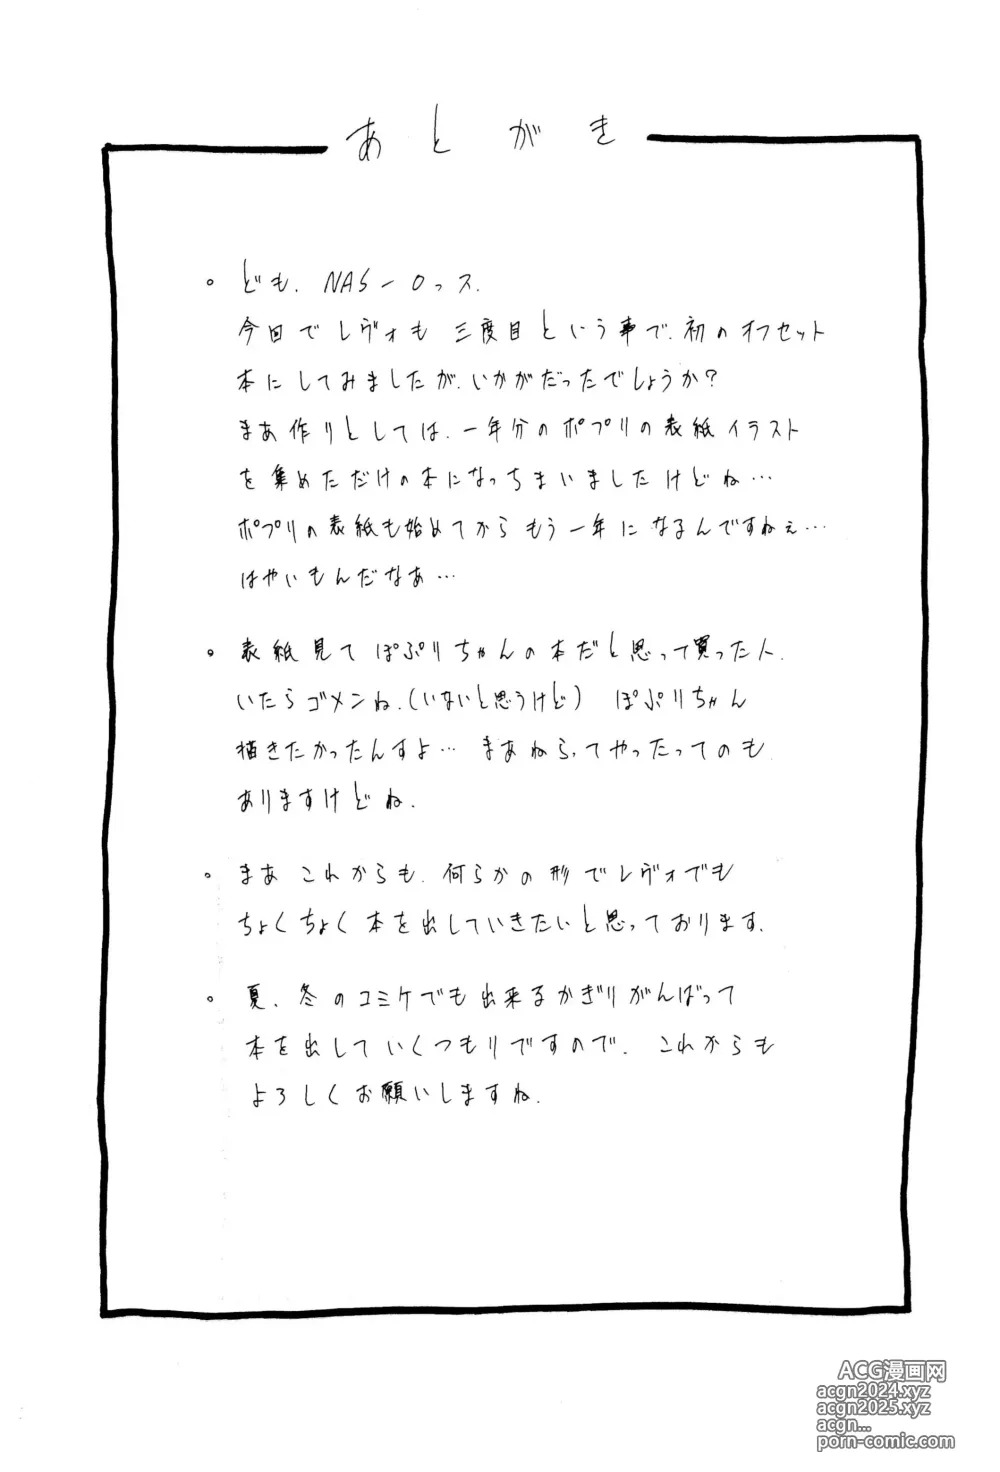 あとがき
。ども、NAS-Oっス.
今回でレヴォも三度目という事で、初のオフセット
本にしてみましたが、いかがだったでしょうか?
まあ作りとしては、一年分のポプリの表紙イラスト
を集めただけの本になっちまいましたけどね…
ポプリの表紙も始めてからもう一年になるんですねぇ…
はやいもんだなあ…
。表紙見てぽぷりちゃんの本だと思って買った人.
いたらゴメンね.(いないと思うけど) ぽぷりちゃん
描きたかったんすよ… まあねらってやったってのも
ありますけどね.
。まあ これからも、何らかの形でレヴォでも
ちょくちょく本を出していきたいと思っております.
。夏、冬のコミケでも出来るかぎりがんばって
本を出していくつもりですので、これからも
よろしくお願いしますね.
ACG漫画网
acgn2024.xyz
acgn2025.xyz
acgn...
porn-comic.com